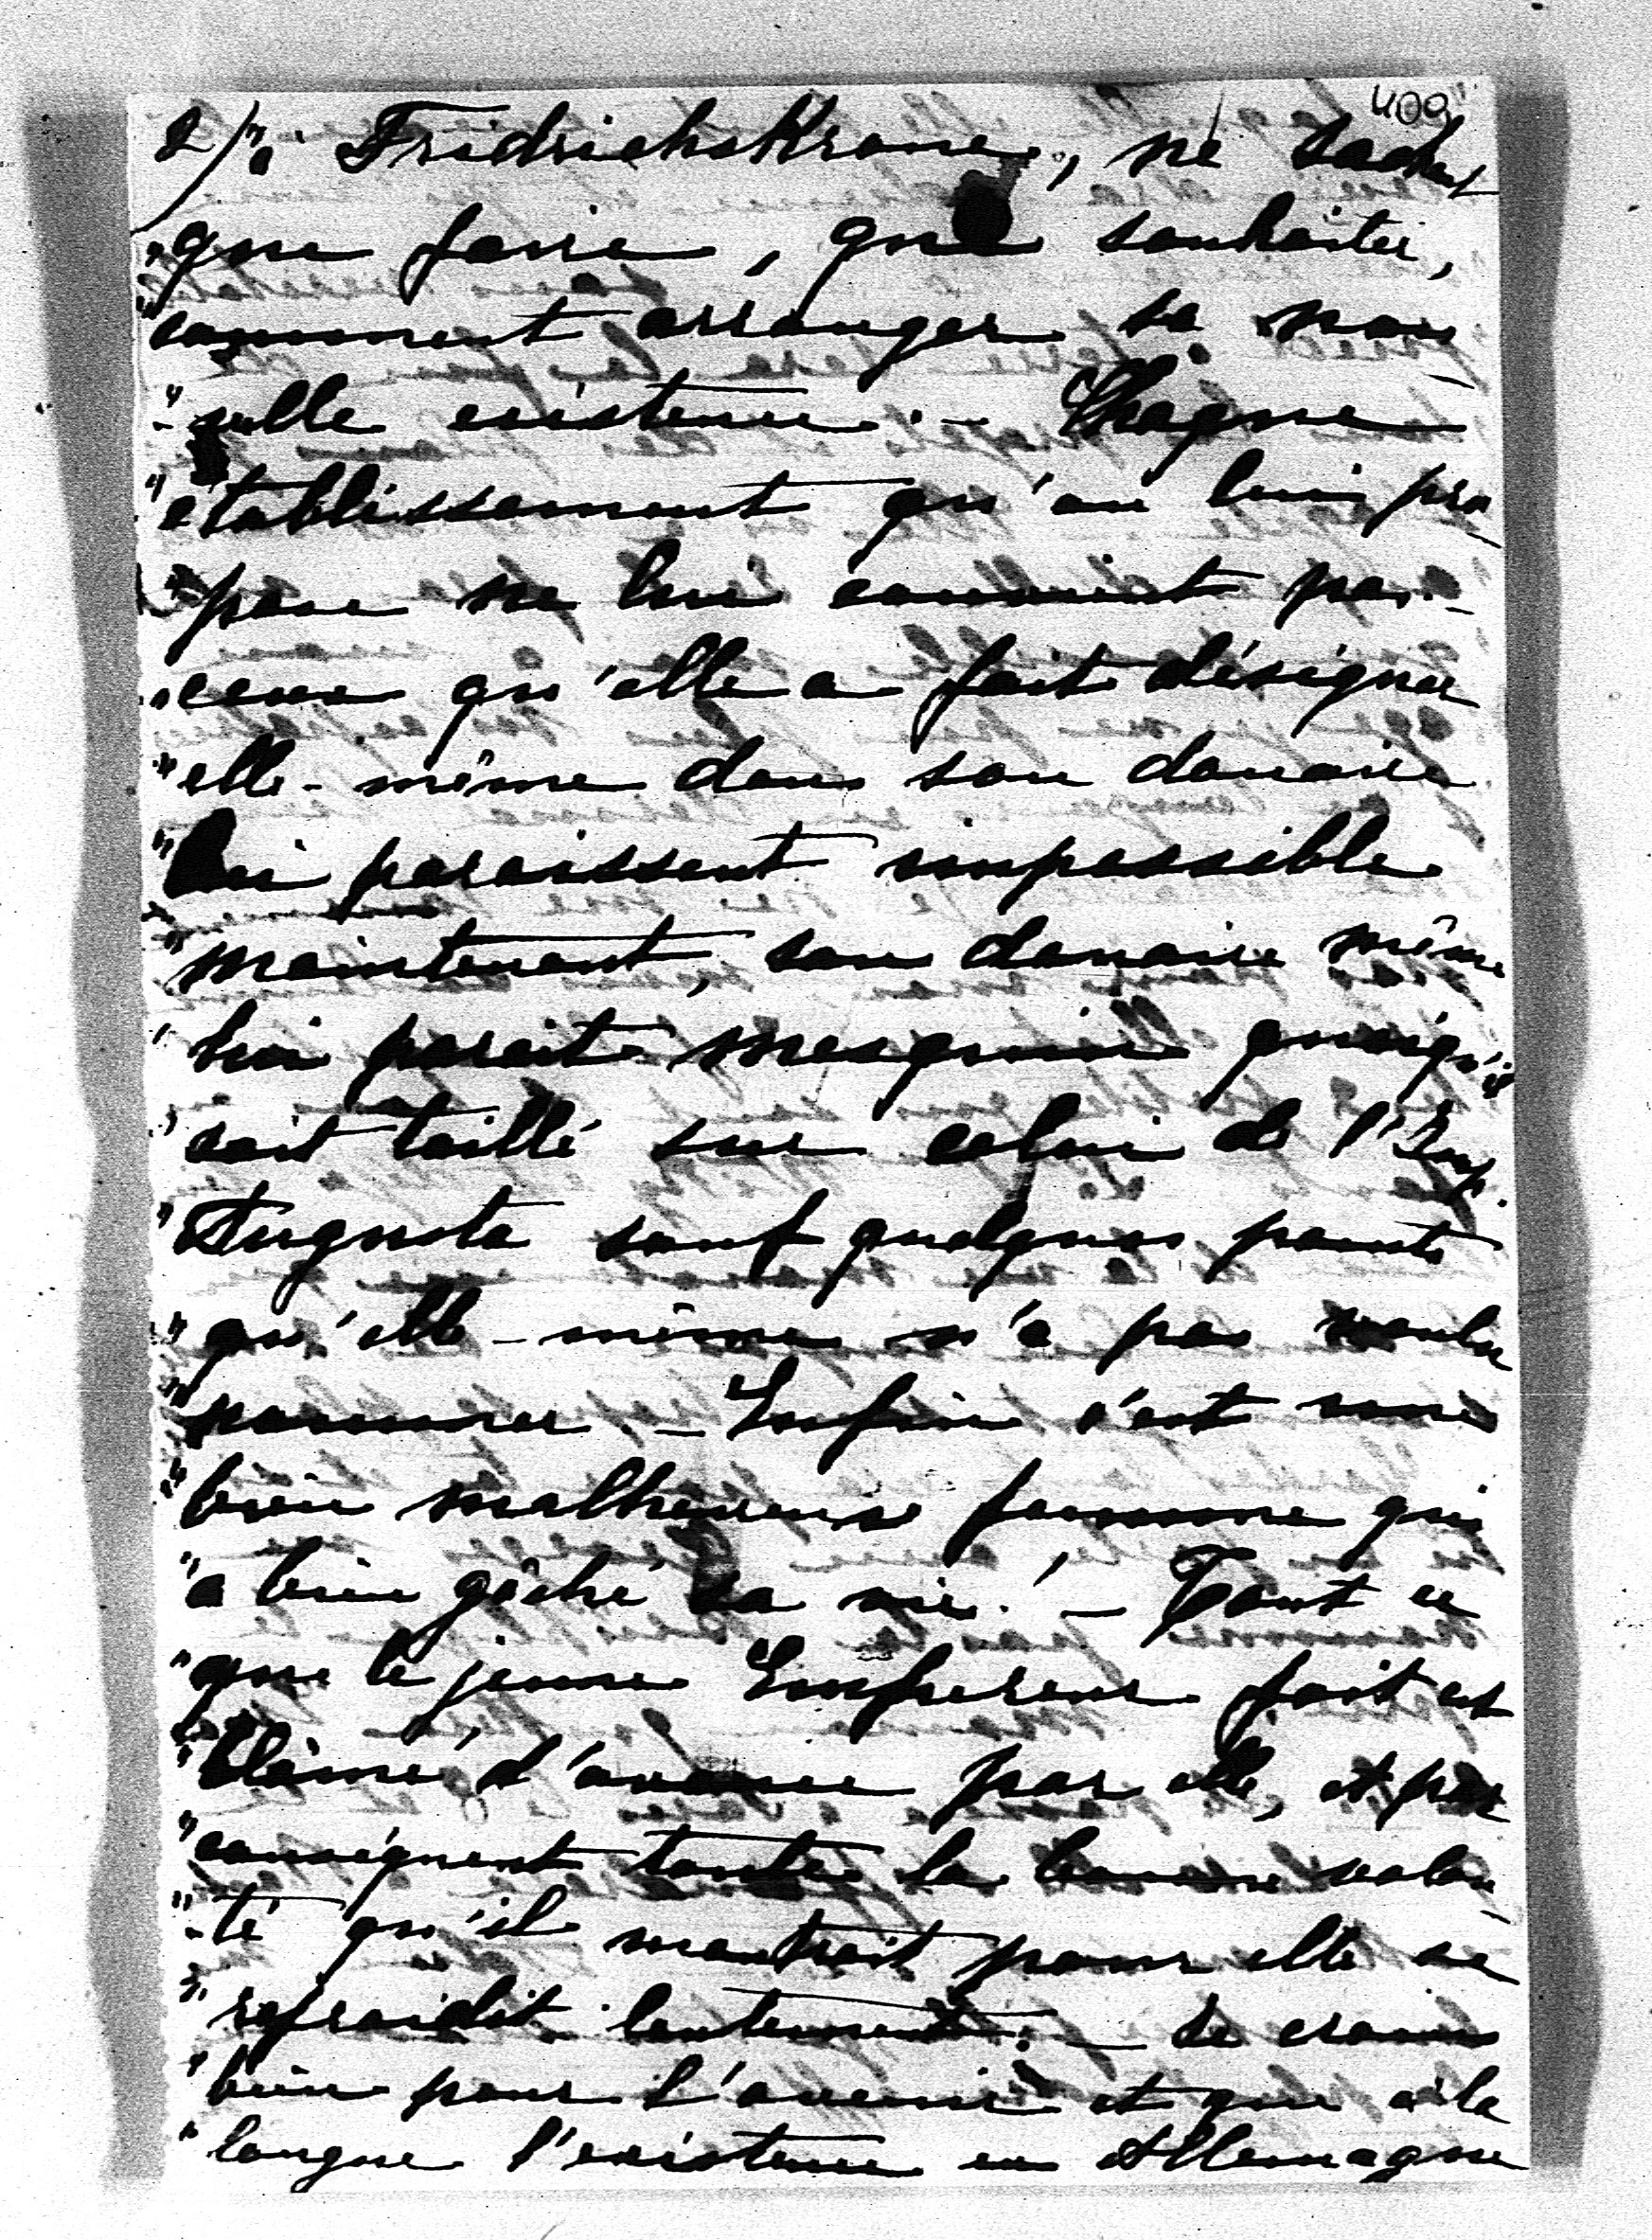 409
2/ " à Fridrichskrone, ne sachant
" que faire, que souhaiter,
" comment arranger sa nou
" -velle existence. – Chaque
" établissement qu'on lui pro
" pose ne lui convient pas –
" ceux qu'elle a fait désigner
" elle-même dans son douaire
" lui paraissent impossible
" maintenant, son douaire même
" lui parait mesquin quoiqu'il
" soit taillé sur celui de l'Imp.
" Augusta sauf quelques points
" qu'elle-même n'a pas voulu
" nommer. – Enfin c'est une
" bien malheureuse femme qui
" a bien gâché sa vie! – Tout ce
" que le jeune Empereur fait est
" blâmé d'avance par elle, et par
" conséquent toute la bonne volon
" -té qu'il montrait pour elle se
" refroidit lentement. – Je crains
" bien pour l'avenir et que à la
" longue l'existence en Allemagne